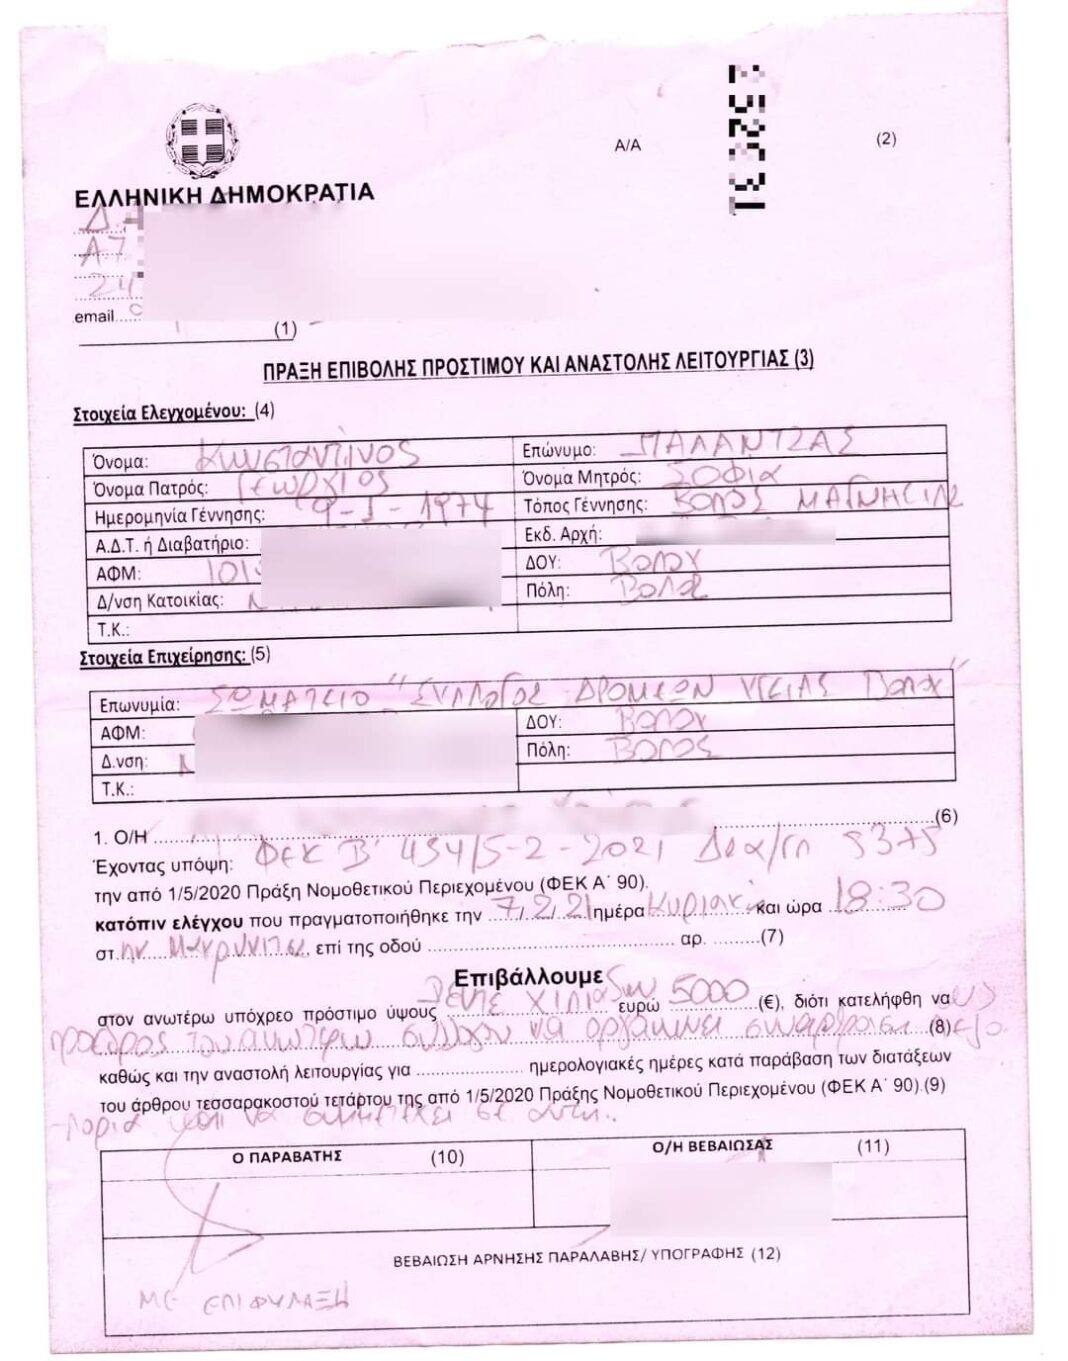 Α/Α
(2)
ΕΛΛΗΝΙΚΗ ΔΗΜΟΚΡΑΤΙΑ
email
(1)
ΠΡΑΞΗ ΕΠΙΒΟΛΗΣ ΠΡΟΣΤΙΜΟΥ ΚΑΙ ΑΝΑΣΤΟΛΗΣ ΛΕΙΤΟΥΡΓΙΑΣ (3)
Στοιχεία Ελεγχομένου: (4)
Όνομα: Κωνσταντίνος Επώνυμο: ΠΑΛΑΝΤΖΑΣ
Όνομα Πατρός: Γεώργιος Όνομα Μητρός: ΣΟΦΙΑ
Ημερομηνία Γέννησης: 1974 Τόπος Γέννησης: ΒΟΛΟΣ ΜΑΓΝΗΣΙΑΣ
Α.Δ.Τ. ή Διαβατήριο: Εκδ. Αρχή:
ΑΦΜ: 101 ΔΟΥ: ΒΟΛΟΥ
Δ/νση Κατοικίας: Πόλη: ΒΟΛΟΣ
Τ.Κ.:
Στοιχεία Επιχείρησης: (5)
Επωνυμία: ΣΩΜΑΤΕΙΟ "ΣΥΛΛΟΓΟΣ ΔΡΟΜΕΩΝ ΥΓΕΙΑΣ ΒΟΛΟΥ"
ΑΦΜ: ΔΟΥ: ΒΟΛΟΥ
Δ.νση: Πόλη: ΒΟΛΟΣ
Τ.Κ.:
1. Ο/Η (6)
Έχοντας υπόψη: ΦΕΚ Β' 454/5-2-2021 5375
την από 1/5/2020 Πράξη Νομοθετικού Περιεχομένου (ΦΕΚ Α΄ 90).
κατόπιν ελέγχου που πραγματοποιήθηκε την 7/2/21 ημέρα Κυριακή και ώρα 18:30
στ , επί της οδού αρ. (7)
Επιβάλλουμε
στον ανωτέρω υπόχρεο πρόστιμο ύψους Πέντε χιλιάδων ευρώ 5000 (€), διότι κατελήφθη να ως
πρόεδρος του ανωτέρω συλλόγου να οργανώνει συνάθροιση (8)
καθώς και την αναστολή λειτουργίας για ημερολογιακές ημέρες κατά παράβαση των διατάξεων
του άρθρου τεσσαρακοστού τετάρτου της από 1/5/2020 Πράξης Νομοθετικού Περιεχομένου (ΦΕΚ Α΄ 90).(9)
και να συμμετέχει σε αυτή..
Ο ΠΑΡΑΒΑΤΗΣ (10) Ο/Η ΒΕΒΑΙΩΣΑΣ (11)
ΒΕΒΑΙΩΣΗ ΑΡΝΗΣΗΣ ΠΑΡΑΛΑΒΗΣ/ ΥΠΟΓΡΑΦΗΣ (12)
ΜΕ ΕΠΙΦΥΛΑΞΗ